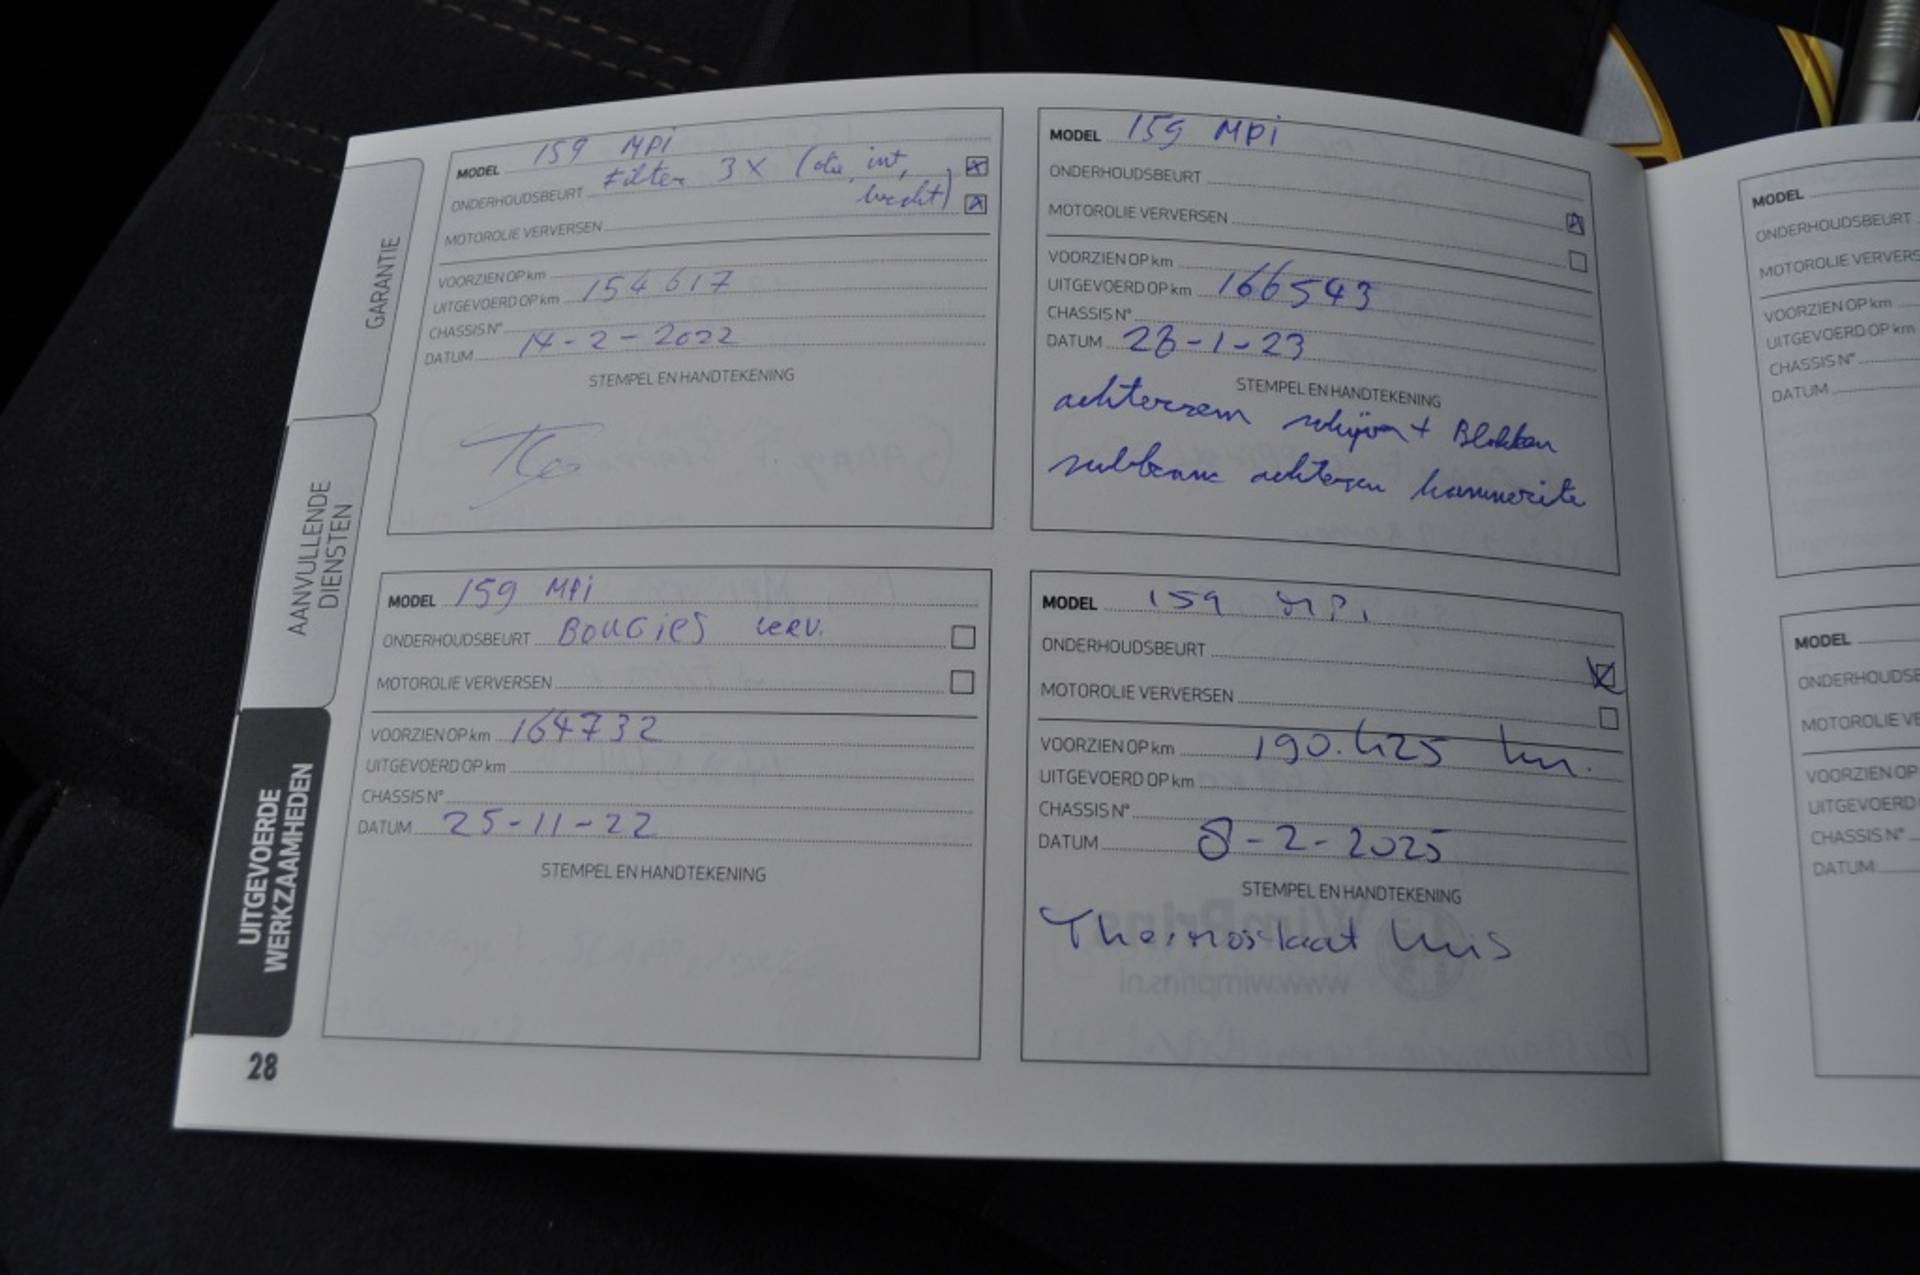 GARANTIE
AANVULLENDE
DIENSTEN
UITGEVOERDE
WERKZAAMHEDEN
28
MODEL 159 MPi
ONDERHOUDSBEURT Filter 3X (olie, int,
lucht)
MOTOROLIE VERVERSEN
VOORZIEN OP km
UITGEVOERD OP km 154617
CHASSIS N°
DATUM 14-2-2022
STEMPEL EN HANDTEKENING
MODEL 159 MPi
ONDERHOUDSBEURT
MOTOROLIE VERVERSEN
VOORZIEN OP km
UITGEVOERD OP km 166543
CHASSIS N°
DATUM 28-1-23
STEMPEL EN HANDTEKENING
achterrem schijven + Blokken
subframe achteras hammerite
MODEL 159 MPi
ONDERHOUDSBEURT BOUGIES VERV.
MOTOROLIE VERVERSEN
VOORZIEN OP km 164732
UITGEVOERD OP km
CHASSIS N°
DATUM 25-11-22
STEMPEL EN HANDTEKENING
MODEL 159 MPi
ONDERHOUDSBEURT
MOTOROLIE VERVERSEN
VOORZIEN OP km 190.425 km.
UITGEVOERD OP km
CHASSIS N°
DATUM 8-2-2025
STEMPEL EN HANDTEKENING
Thermostaat huis
MODEL
ONDERHOUDSBEURT
MOTOROLIE VERVERS
VOORZIEN OP km
UITGEVOERD OP km
CHASSIS N°
DATUM
MODEL
ONDERHOUDSBE
MOTOROLIE VE
VOORZIEN OP
UITGEVOERD
CHASSIS N°
DATUM